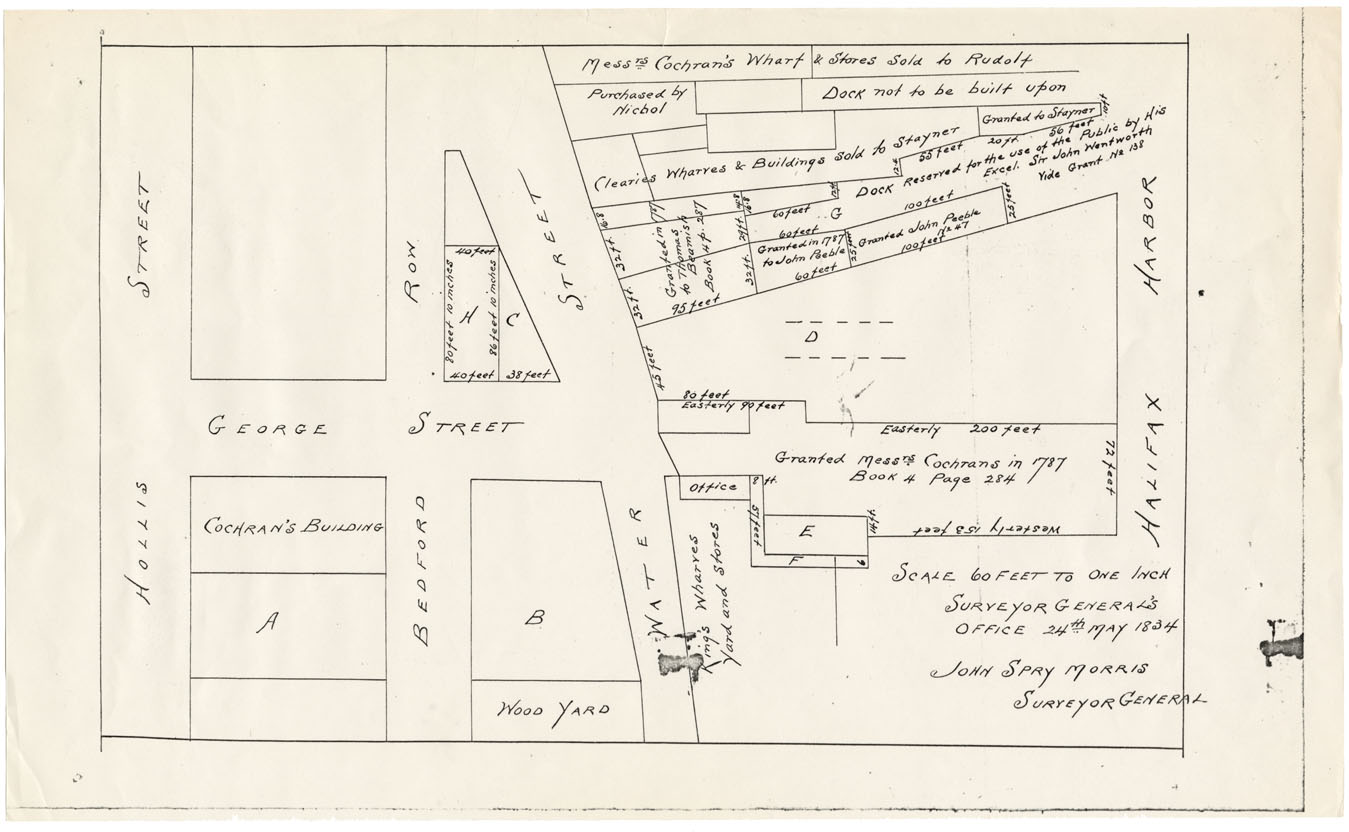 Messrs Cochran's Wharf & Stores Sold to Rudolf
Purchased by
Nichol
Dock not to be built upon
Granted to Stayner
10ft
56 feet
20ft
55 feet
12ft
Clearies Wharves & Buildings Sold to Stayner
Dock Reserved for the use of the Public by His
Excel. Sir John Wentworth
Vide Grant No 138
16.8
14.8
16.8
12ft
60 feet
G
100 feet
25 feet
32 ft.
Granted in 1787
to Thomas
Beamish
Book 4 p. 287
24ft.
60 feet
Granted in 1787
to John Peeble
60 feet
32 ft.
25 feet
Granted John Peeble
No 47
100 feet
32 ft.
95 feet
D
45 feet
80 feet
Easterly 90 feet
Easterly 200 feet
72 feet
Granted Messrs Cochrans in 1787
Book 4 Page 284
Westerly 153 feet
Office
8 ft.
57 feet
E
14 ft.
F
9
King's Wharves
Yard and Stores
40 feet
80 feet 10 inches
H
86 feet 10 inches
C
40 feet
38 feet
HOLLIS STREET
BEDFORD ROW
GEORGE STREET
WATER STREET
HALIFAX HARBOR
Cochran's Building
A
B
Wood Yard
Scale 60 feet to one Inch
Surveyor General's
Office 24th May 1834
John Spry Morris
Surveyor General